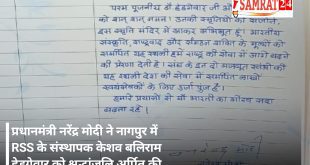 SAMRAT24
परम पूजनीय डॉ हेडगेवार जी
को शत् शत् नमन। उनकी स्मृतियों को
इस स्मृति मंदिर में आकर अभिभूत हूं। भारतीय
संस्कृति, राष्ट्रवाद और के मूल्यों को
समर्पित यह स्थली हमें राष्ट्र की सेवा में आगे बढ़ने
की प्रेरणा देती है। संघ के इन दो मजबूत स्तंभों की
यह स्थली देश की सेवा में समर्पित लाखों
स्वयंसेवकों के लिए ऊर्जा पुंज है।
हमारे प्रयासों से मां भारती का गौरव सदा
बढ़ता रहे।
प्रधानमंत्री नरेंद्र मोदी ने नागपुर में
RSS के संस्थापक केशव बलिराम
हेडगेवार को श्रद्धांजलि अर्पित की